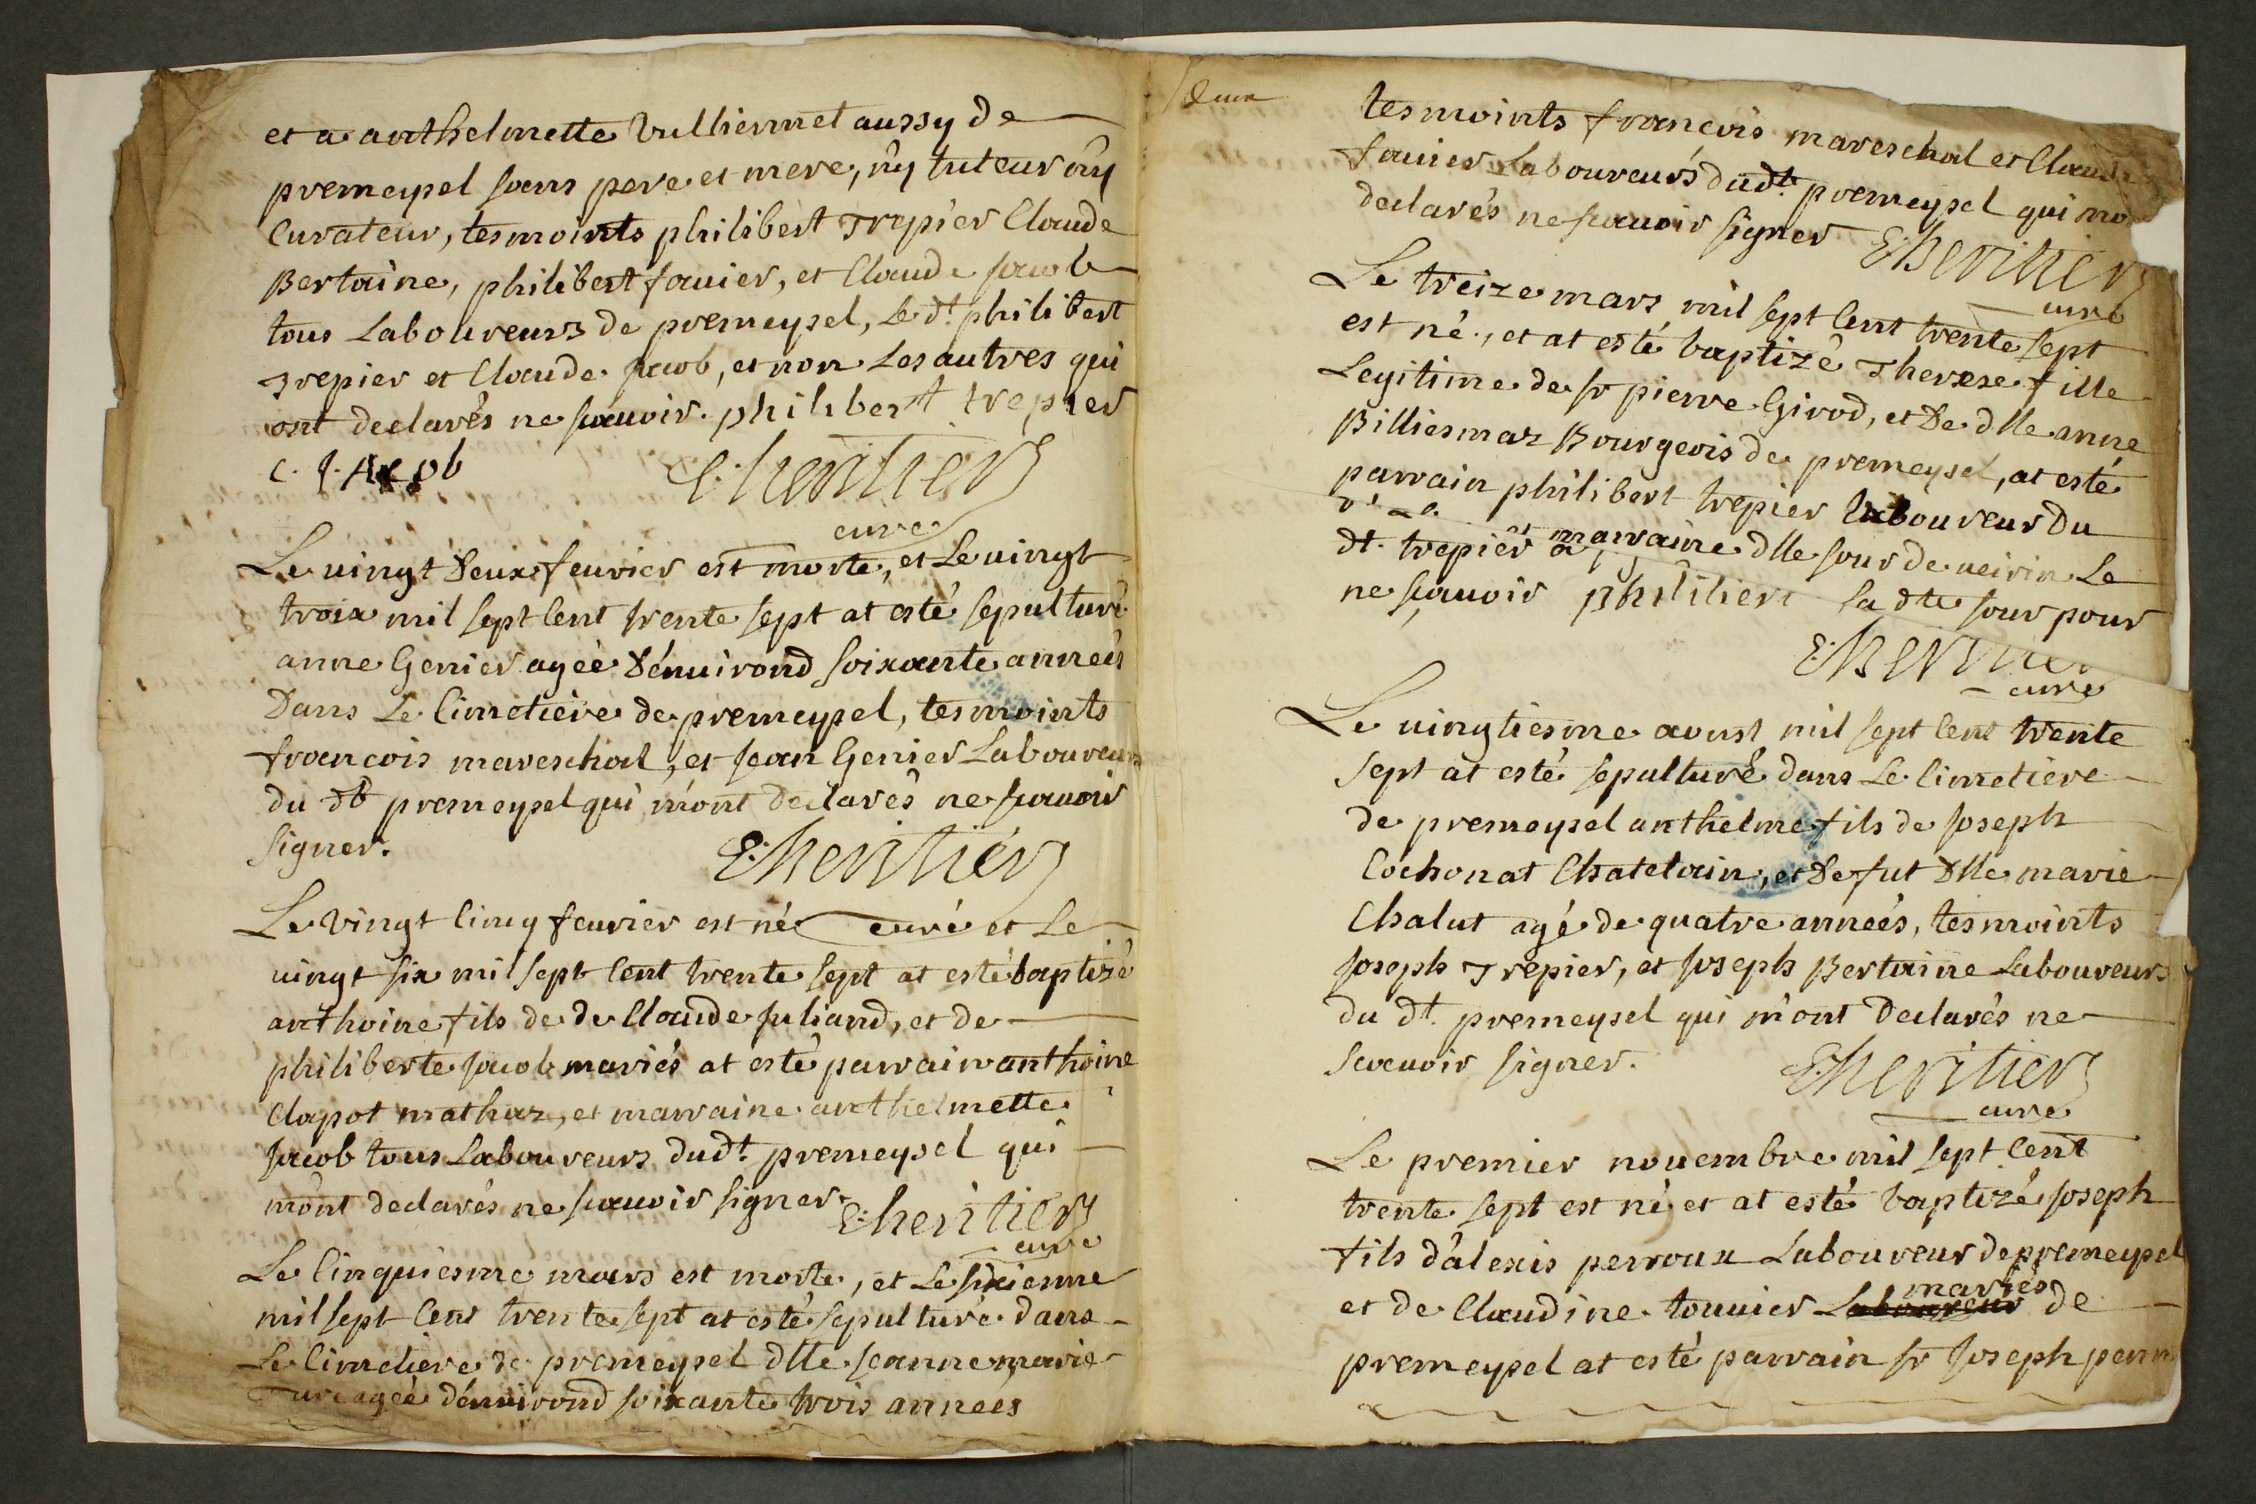 et a anthelmette Vulliermet aussy de
premeysel sans pere et mere, n'y tuteur n'y
Curateur, tesmoints philibert Trepier Claude
Bertaine, philibert favier, et Claude jacob
tous Laboureurs de premeysel, Le dt. philibert
Trepier et Claude jacob, et non Les autres qui
ont declarés ne sçauoir. philibert trepier
c. j. Acob
E: heritier
curé
Le uingt deux feurier est morte, et Le uingt
troix mil sept Cent trente sept at esté sepulturé
anne Genier ageé d'enuirond soixante anneés
Dans Le Cimetiere de premeysel, tesmoints
francois mareschal, et jean Genier Laboureurs
du dt premeysel qui m'ont declarés ne sçauoir
signer.
E: heritier
Le vingt Cinq feurier est né curé et Le
uingt six mil sept Cent trente sept at esté baptizé
anthoine fils de de Claude juliand, et de
philiberte jacob mariés at esté parrain anthoine
Clapot mathaz, et marraine anthelmette
jacob tous Laboureurs du dt. premeysel qui
m'ont declarés ne sçauoir signer.
E: heritier
curé
Le Cinquiesme mars est morte, et Le sixiesme
mil sept Cent trente sept at esté sepulture dans
Le Cimetiere de premeysel dlle jeanne marie
ageé d'enuirond soixante trois anneés
tesmoints françois mareschal et Claude
fauier Laboureurs du dt. premeysel qui mo
declarés ne sçauoir signer
E: heritier
curé
Le treize mars mil sept Cent trente sept
est né, et at esté baptizé Therese fille
Legitime de sr pierre Girod, et de dlle anne
Billiesmaz Bourgeois de premeysel, at esté
parrain philibert trepier Laboureur du
dt. trepier et marraine dlle sour de ueirin Le
ne sçauoir philibert la dte sour pour
E: heritier
curé
Le uingtiesme aoust mil sept Cent trente
sept at esté sepulturé dans Le Cimetiere
de premeysel anthelme fils de joseph
Cochonat Chatelain, et de fut dlle marie
Chalut agé de quatre anneés, tesmoints
joseph Trepier, et joseph Bertaine Laboureurs
du dt. premeysel qui m'ont declarés ne
scauoir signer.
E: heritier
curé
Le premier nouembre mil sept Cent
trente sept est né et at esté baptizé joseph
fils d'alexis perroux Laboureur de premeysel
mariés
et de Claudine touuier Laboureur de
premeysel at esté parrain sr joseph